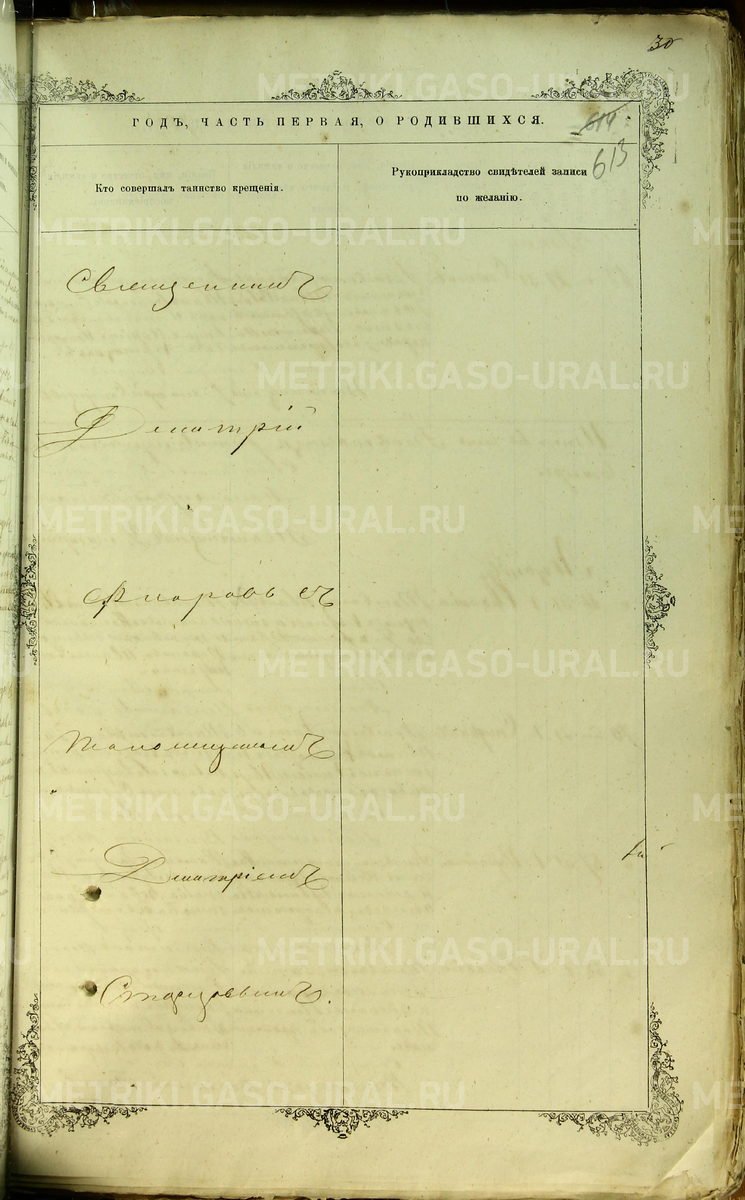 30
ГОДЪ, ЧАСТЬ ПЕРВАЯ, О РОДИВШИХСЯ.
614
613
Кто совершалъ таинство крещенія.
Рукоприкладство свидѣтелей записи
по желанію.
Священникъ
Дмитрій
съ
Дмитріемъ
Старцовымъ.
METRIKI.GASO-URAL.RU